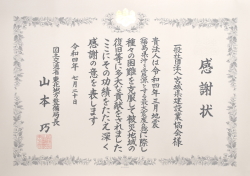 感謝状
一般社団法人宮城県建設業協会様
貴法人は令和四年三月地震
福島県沖を震源とする最大震度六強に際し
種々の困難を克服して被災地域の
復旧等に多大な貢献をされました
ここにその功績をたたえ深く
感謝の意を表します
令和四年七月二十日
国土交通省東北地方整備局長
山本巧